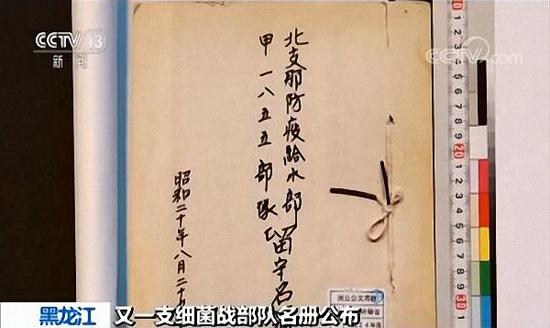 CCTV 13
新闻
CCTV.com
北支那防疫給水部留守名
甲一八五五部隊
昭和二十年八月二十
黑龙江
又一支细菌战部队名册公布